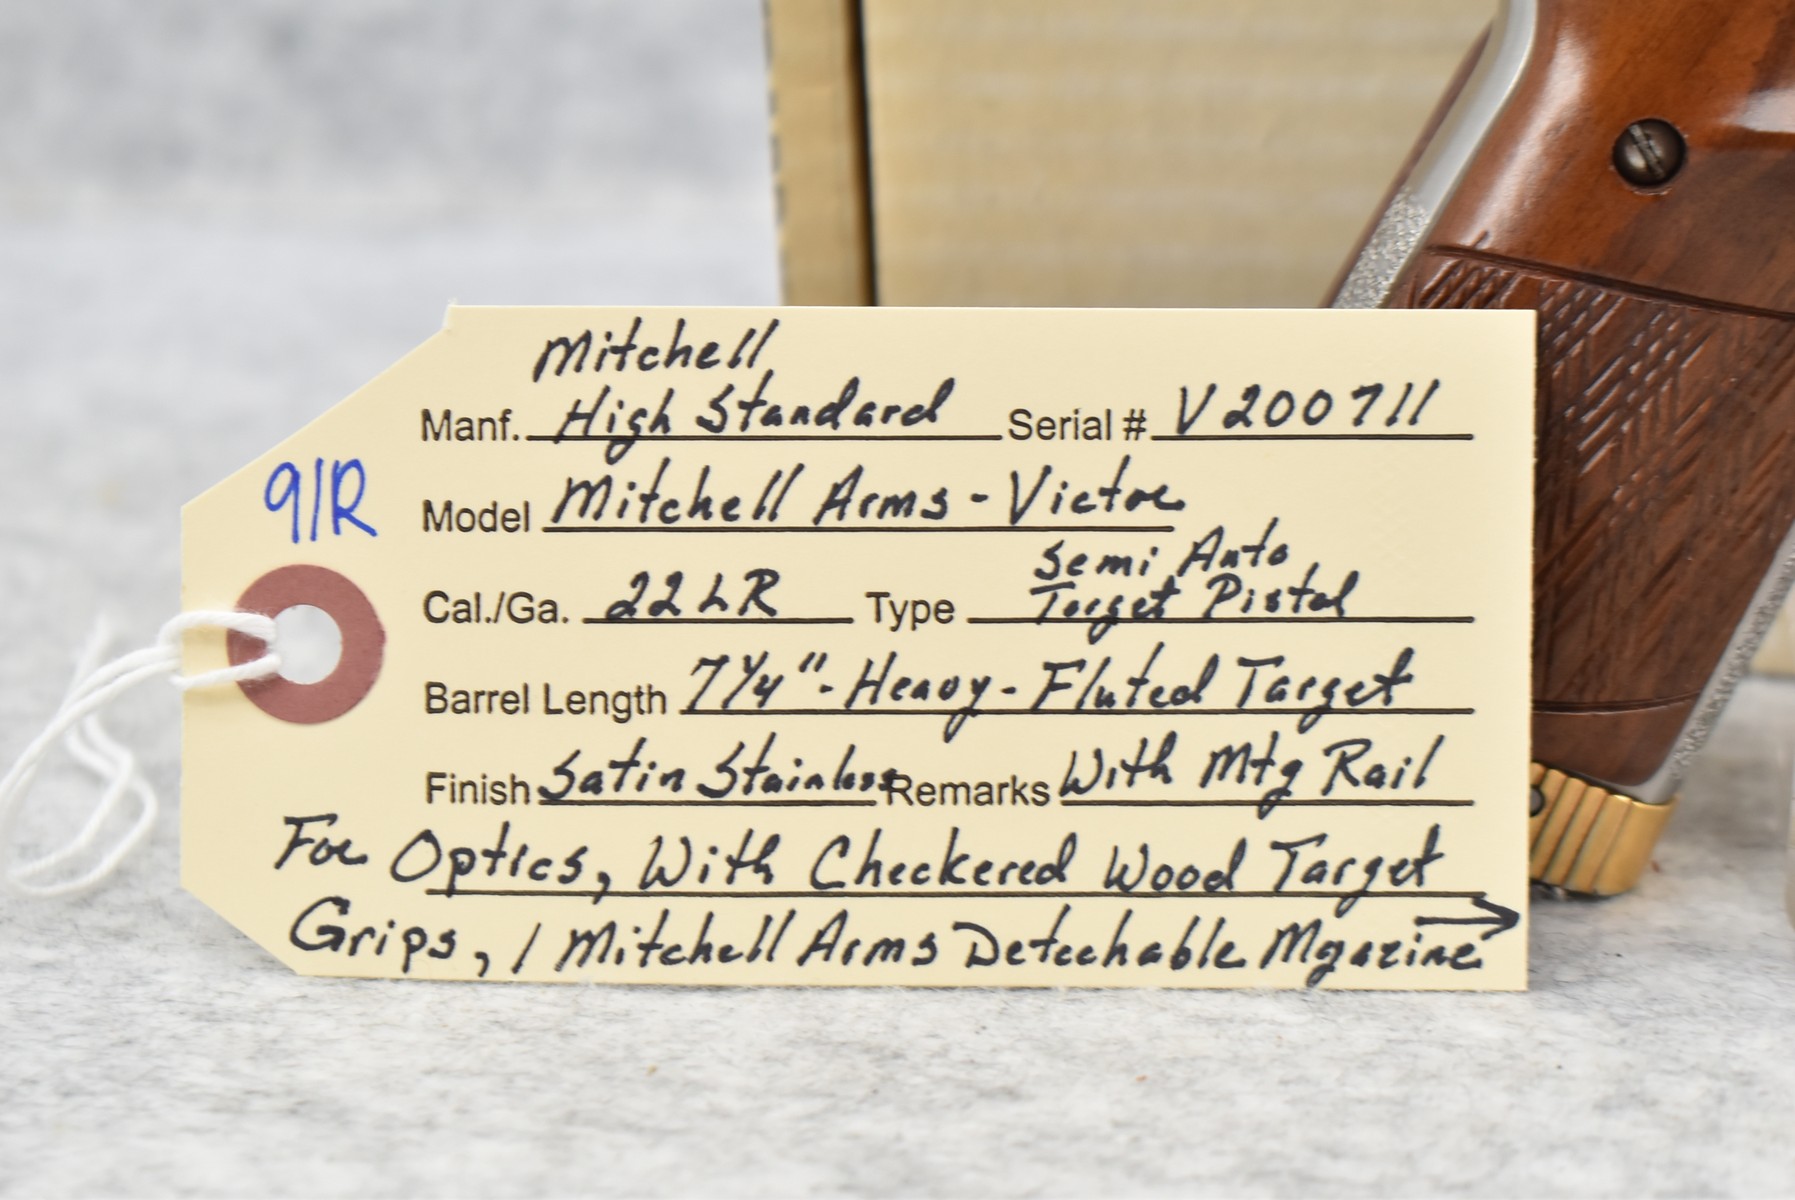 Mitchell
Manf. High Standard Serial # V200711
91R
Model Mitchell Arms - Victor
Semi Auto
Cal./Ga. 22LR Type Target Pistol
Barrel Length 7¼" - Heavy - Fluted Target
Finish Satin Stainless Remarks With Mtg Rail
For Optics, With Checkered Wood Target
Grips, 1 Mitchell Arms Detechable Mgazine →